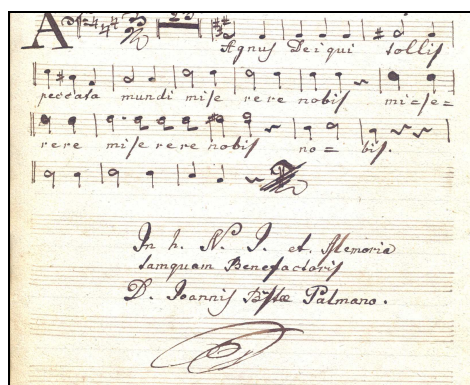 A
Agnus Dei qui tollis
peccata mundi mise rere nobis mi=se=
rere mise rere nobis no= bis.
In h. N. I. et. Memoria
tamquam Benefactoris
D. Joannis Bṗtae Palmano.